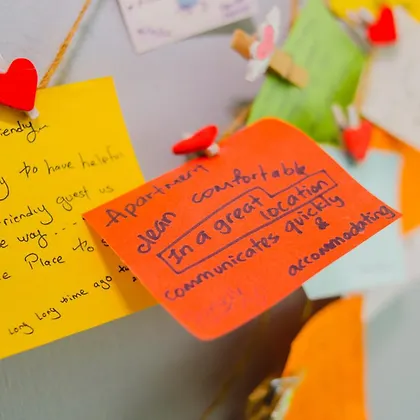 iendly
y to have helpful
riendly guest us
e way---
e Place to s
Long Long time ago to
Apartment
clean comfortable
In a great location
communicates quickly
&
accommodating